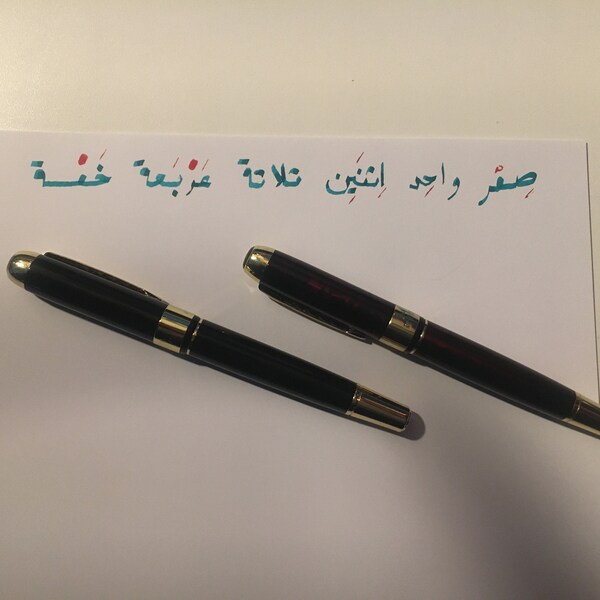 صِفْر واحِد اِثنَيِن تلاتة عَرْبَعة خَمْسة